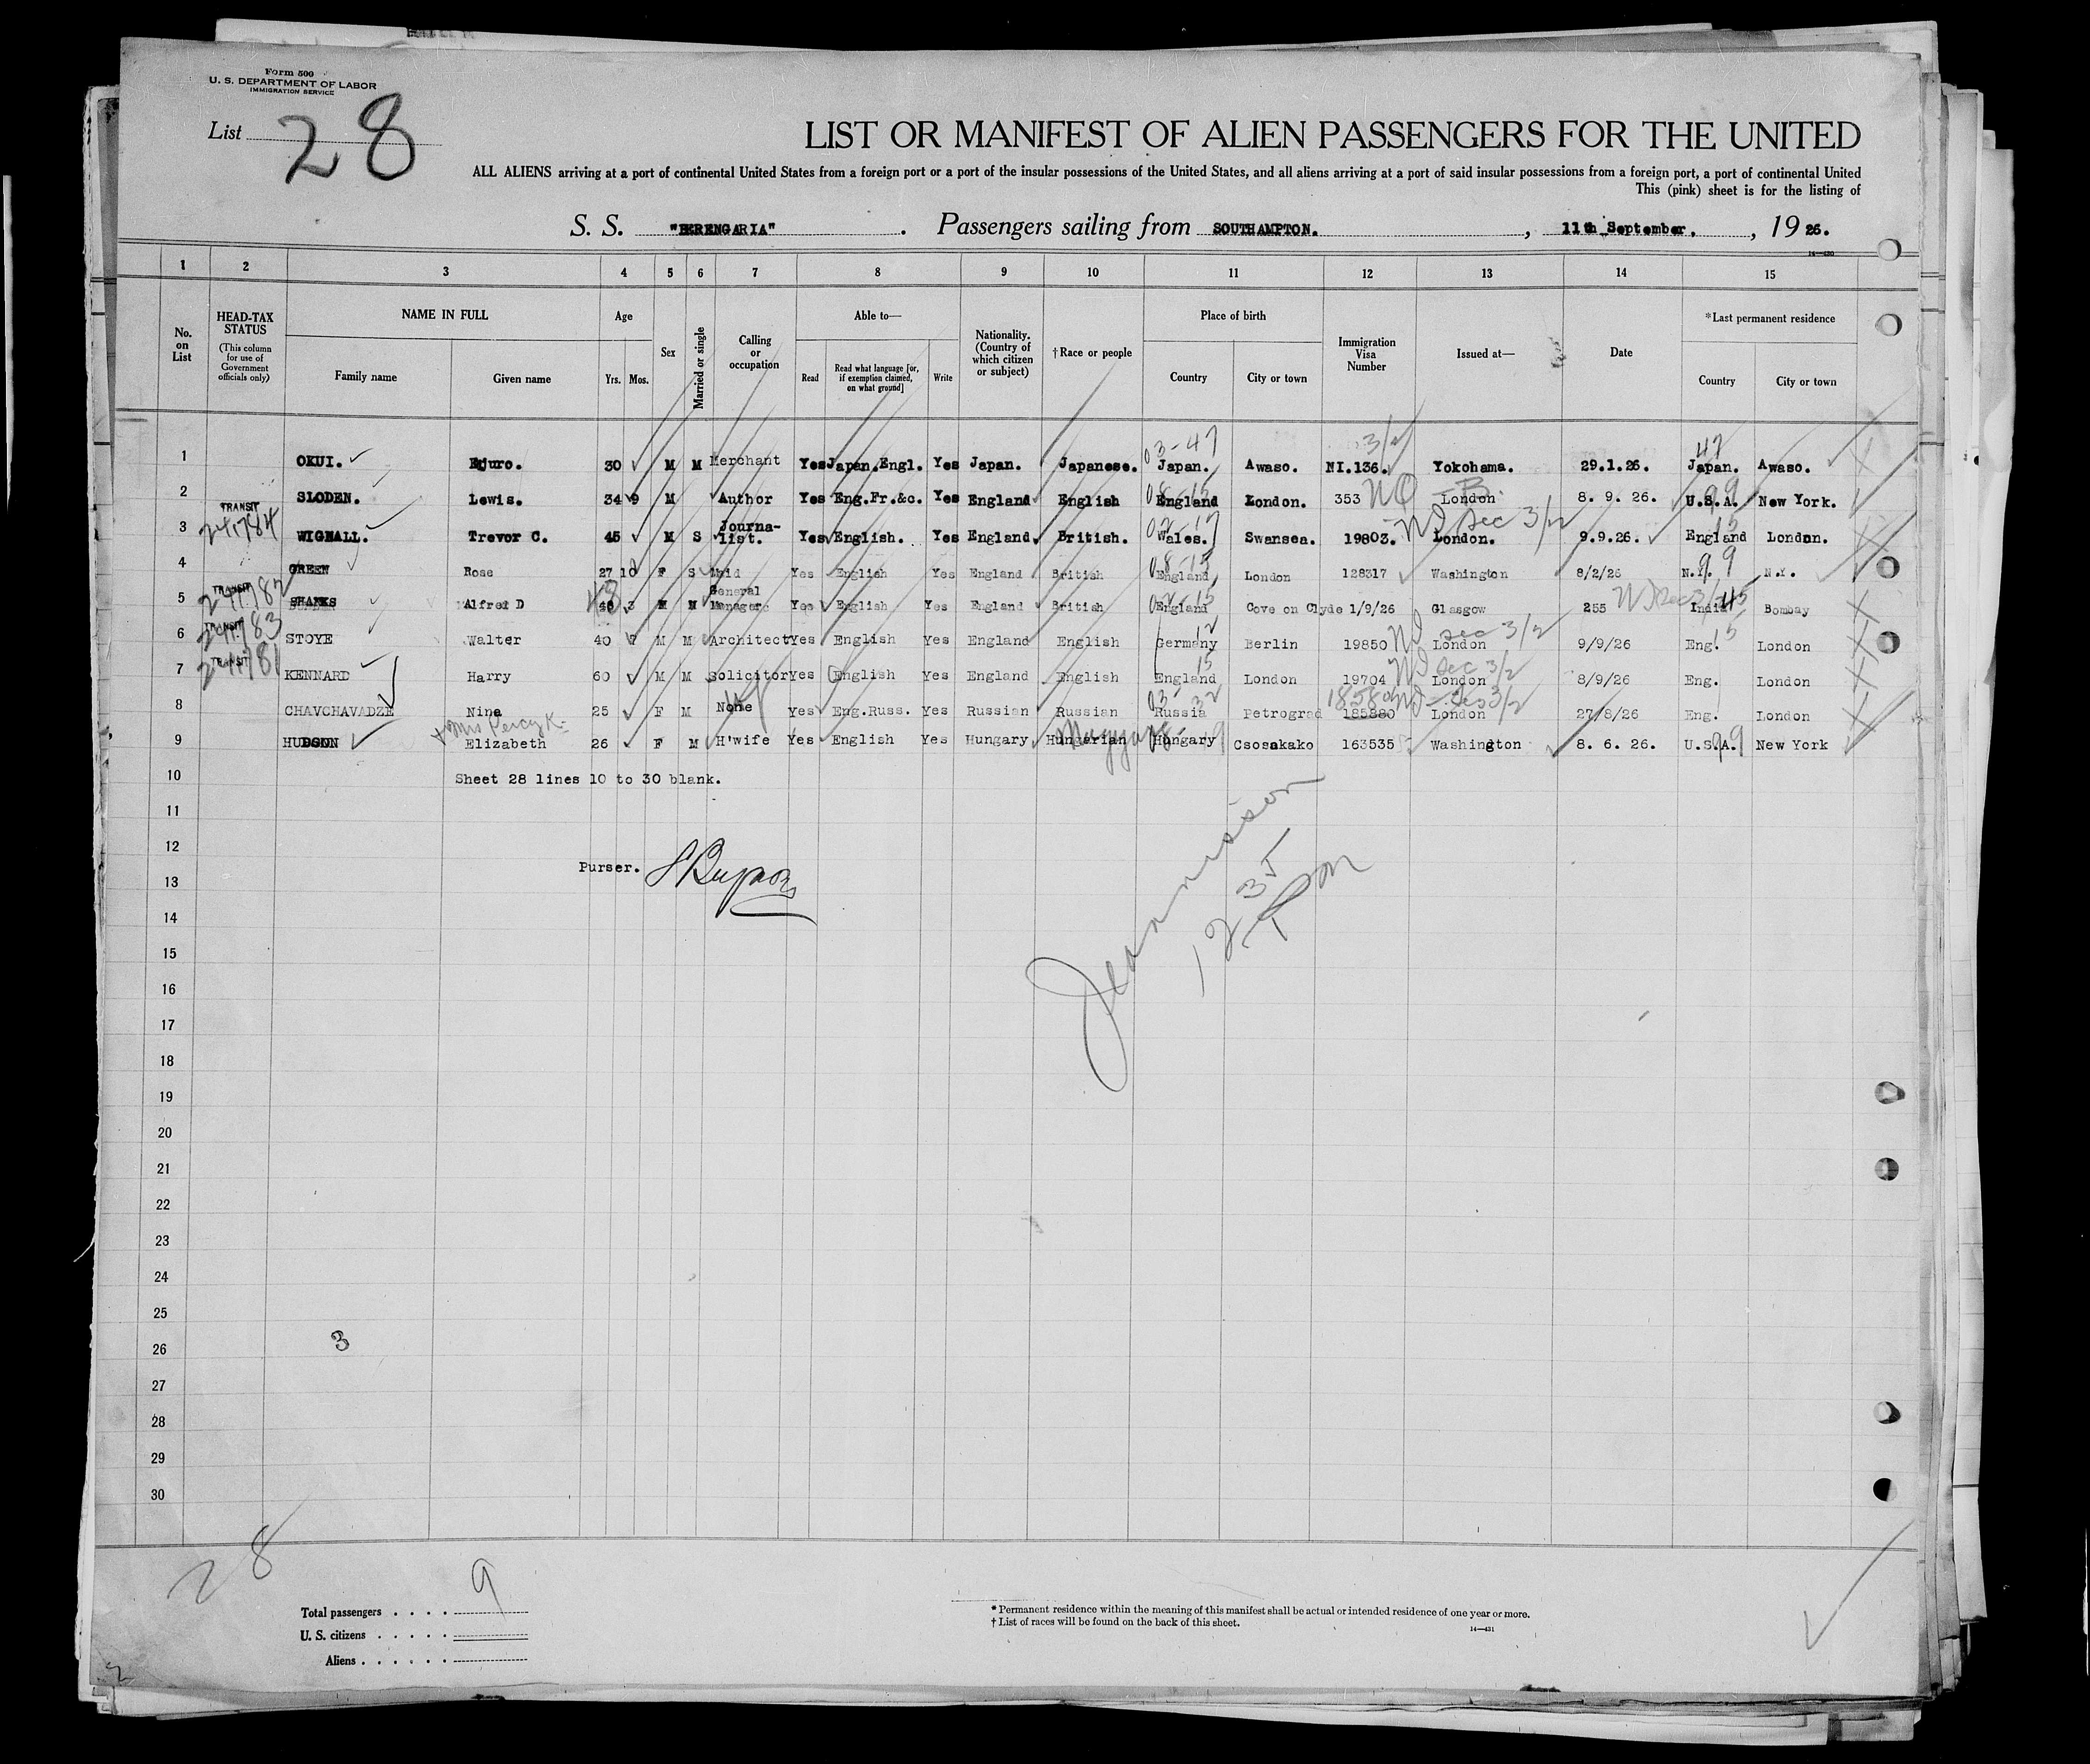 Form 500
U. S. DEPARTMENT OF LABOR
IMMIGRATION SERVICE
List 28
LIST OR MANIFEST OF ALIEN PASSENGERS FOR THE UNITED
ALL ALIENS arriving at a port of continental United States from a foreign port or a port of the insular possessions of the United States, and all aliens arriving at a port of said insular possessions from a foreign port, a port of continental United
This (pink) sheet is for the listing of
S. S. "BERENGARIA". Passengers sailing from SOUTHAMPTON. , 11th September. , 19 26.
14—430
1 2 3 4 5 6 7 8 9 10 11 12 13 14 15
No. on List
HEAD-TAX STATUS (This column for use of Government officials only)
NAME IN FULL
Family name Given name
Age
Yrs. Mos.
Sex
Married or single
Calling or occupation
Able to—
Read
Read what language [or, if exemption claimed, on what ground]
Write
Nationality. (Country of which citizen or subject)
†Race or people
Place of birth
Country City or town
Immigration Visa Number
Issued at—
Date
*Last permanent residence
Country City or town
03-47 3/2 47
1 OKUI. 30 M M Merchant Yes Japan.Engl. Yes Japan. Japanese. Japan. Awaso. NI.136. Yokohama. 29.1.26. Japan. Awaso.
2 SLODEN. Lewis. 34 9 M Author Yes Eng.Fr.&c. Yes England English England London. 353 London 8. 9. 26. U.S.A. New York.
TRANSIT 241784
3 WIGNALL. Trevor C. 45 M S Journa-list. Yes English. Yes England British. Wales. Swansea. 19803. London. 9.9.26. England London.
4 GREEN Rose 27 10 F S Maid Yes English Yes England British England London 128317 Washington 8/2/26 N.Y. N.Y.
TRANSIT 241782
5 SHANKS Alfred D 48 3 M M General Manager Yes English Yes England British England Cove on Clyde 1/9/26 Glasgow 255 India Bombay
TRANSIT 241783
6 STOYE Walter 40 7 M M Architect Yes English Yes England English Germany Berlin 19850 London 9/9/26 Eng. London
TRANSIT 241781
7 KENNARD Harry 60 M M Solicitor Yes English Yes England English England London 19704 London 8/9/26 Eng. London
8 CHAVCHAVADZE Nina 25 F M None Yes Eng.Russ. Yes Russian Russian Russia Petrograd 185880 London 27/8/26 Eng. London
Mrs Percy K-
9 HUDSON Elizabeth 26 F M H'wife Yes English Yes Hungary Hungarian Magyar Hungary Csosakako 163535 Washington 8. 6. 26. U.S.A. New York
10 Sheet 28 lines 10 to 30 blank.
11
12
Purser.
13
14
15
16
17
18
19
20
21
22
23
24
25
26 3
27
28
29
30
28
Total passengers . . . . 9
U. S. citizens . . . . .
Aliens . . . . . .
* Permanent residence within the meaning of this manifest shall be actual or intended residence of one year or more.
† List of races will be found on the back of this sheet.
14—431
2